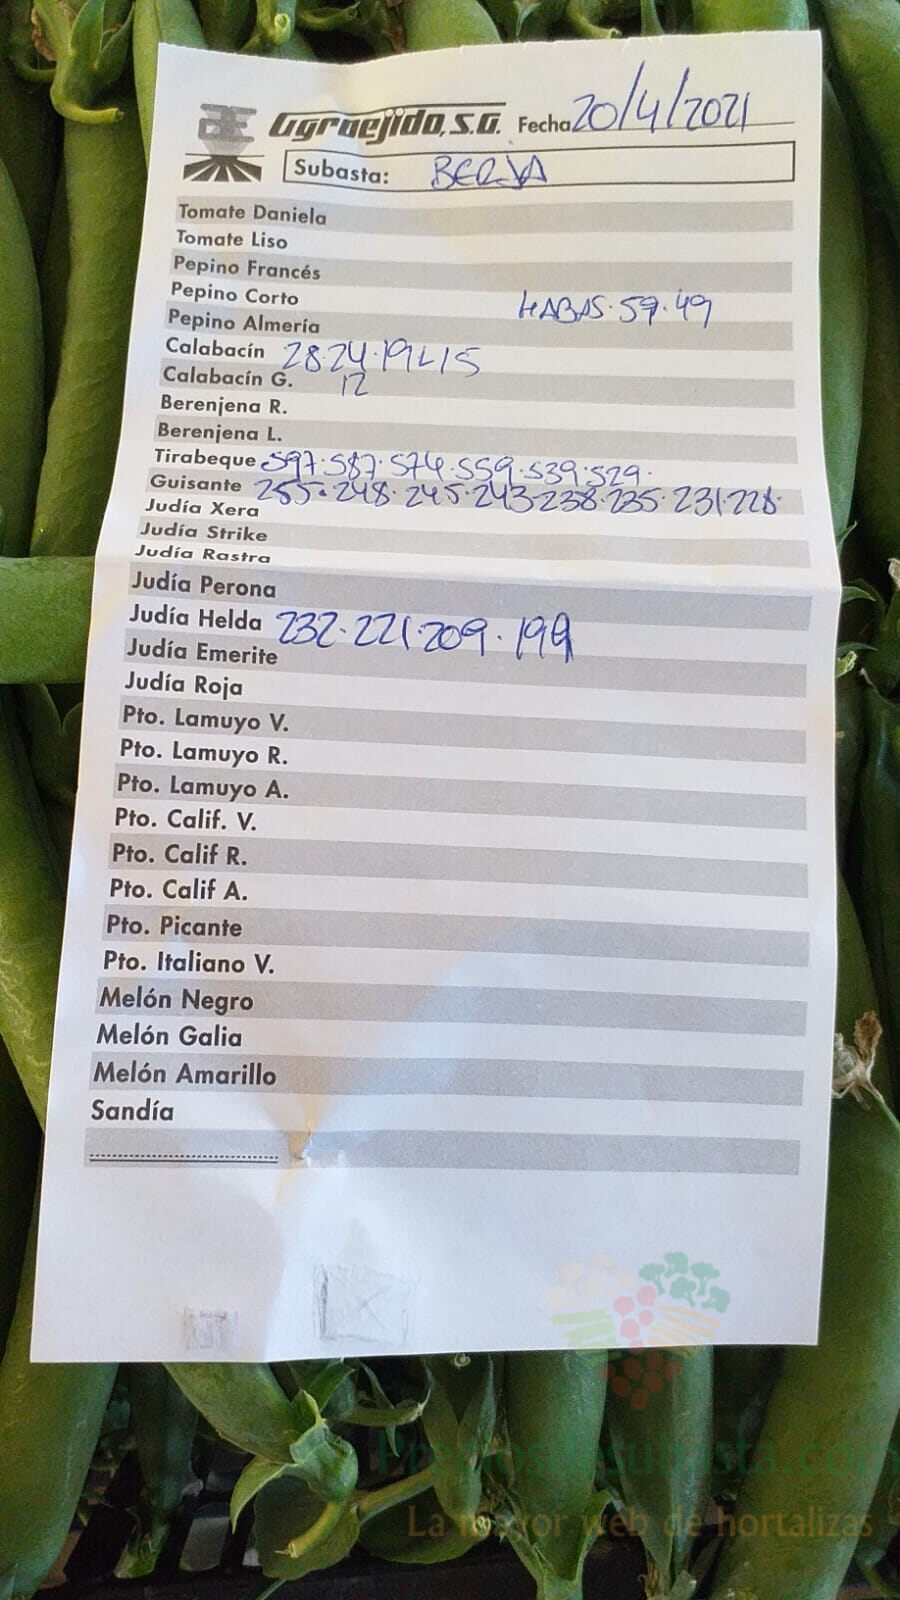 Agroejido, S.A. Fecha 20/4/2021
Subasta: BERJA
Tomate Daniela
Tomate Liso
Pepino Francés
Pepino Corto
HABAS. 59. 49
Pepino Almería
Calabacín 28.24.19 L15
12
Calabacín G.
Berenjena R.
Berenjena L.
Tirabeque 597.587.574.559.539.529.
Guisante 255.248.245.243.238.235.231.228.
Judía Xera
Judía Strike
Judía Rastra
Judía Perona
Judía Helda 232.221.209.199
Judía Emerite
Judía Roja
Pto. Lamuyo V.
Pto. Lamuyo R.
Pto. Lamuyo A.
Pto. Calif. V.
Pto. Calif R.
Pto. Calif A.
Pto. Picante
Pto. Italiano V.
Melón Negro
Melón Galia
Melón Amarillo
Sandía
Preciosdesubasta.com
La mayor web de hortalizas